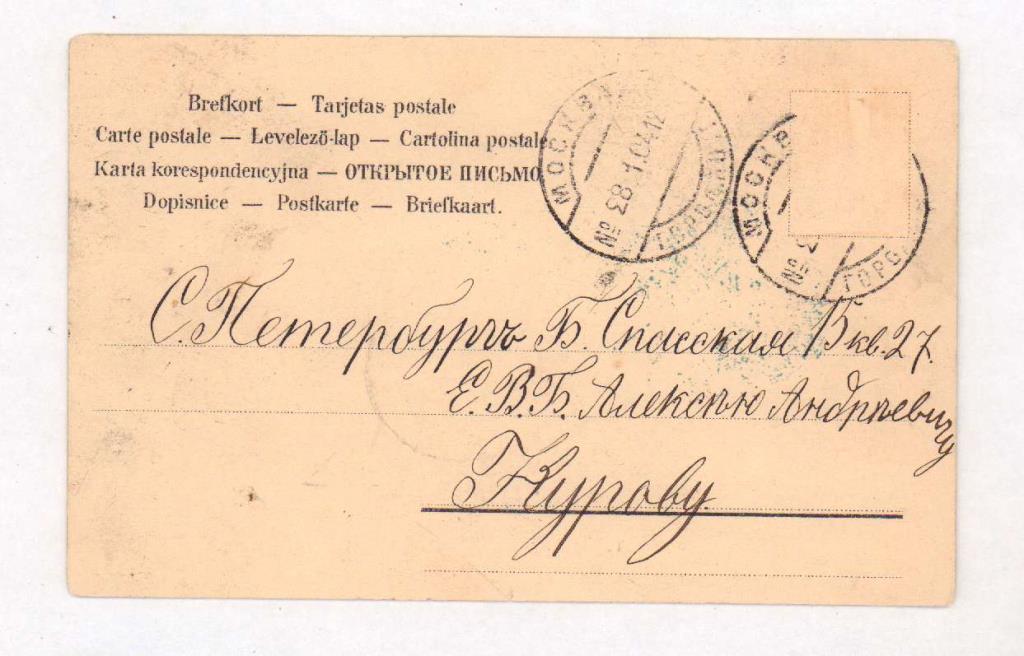 Brefkort — Tarjetas postale
Carte postale — Levelező-lap — Cartolina postale
Karta korespondencyjna — ОТКРЫТОЕ ПИСЬМО
Dopisnice — Postkarte — Briefkaart.
МОСКВА
№ 38 1.04.12
МОСКВ
№ 3
ГОРО
С. Петербургъ Б. Спасская 15 кв. 27.
Е. В. Б. Алексѣю Андрѣевичу
Курову.